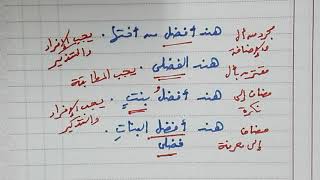 مجرد من أل والإضافة هند أفضل من أختها . يجب الإفراد والتذكير
مقترن بأل هند الفضلى . يجب المطابقة
مضاف إلى نكرة هند أفضل بنتٍ . يجب الإفراد والتذكير
مضاف إلى معرفة هند أفضل البناتِ .
فضلى